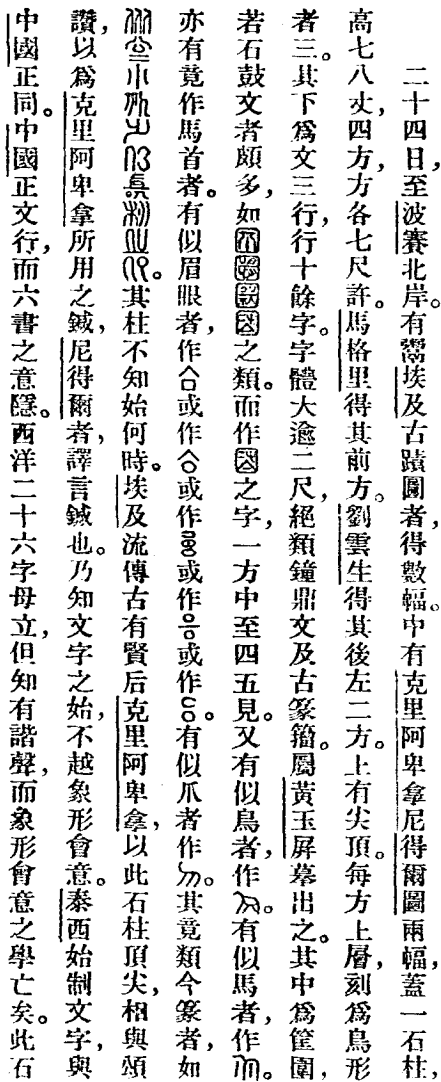 二十四日，至波賽北岸。有鬻埃及古蹟圖者，得數幅。中有克里阿卑拿尼得爾圖兩幅，蓋一石柱，
高七八丈，四方，方各七尺許。馬格里得其前方。劉雲生得其後左二方。上有尖頂。每方上層，刻爲鳥形
者三。其下爲文三行，行十餘字。字體大逾二尺，絕類鐘鼎文及古篆籀。屬黃玉屏摹出之。其中爲筐圍，
若石鼓文者頗多，如之類。而作之字，一方中至四五見。又有似鳥者，作。有似馬者，作。
亦有竟作馬首者。有似眉眼者，作或作或作或作或作。有似爪者作。其竟類今篆者，如
。其柱不知始何時。埃及流傳古有賢后克里阿卑拿，以此石柱頂尖，相與頌
讚，以爲克里阿卑拿所用之鍼，尼得爾者，譯言鍼也。乃知文字之始，不越象形會意。泰西始制文字，與
中國正同。中國正文行，而六書之意隱。西洋二十六字母立，但知有諧聲，而象形會意之學亡矣。此石